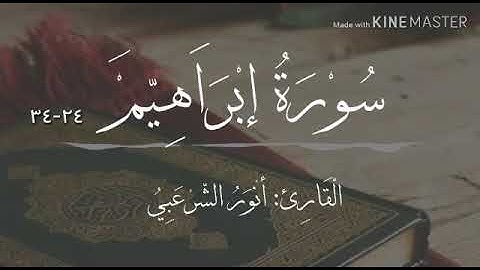 Made with KINEMASTER
سُوْرَةُ إِبْرَاهِيْمَ
٢٤-٣٤
الْقَارِئ: أَنْوَرُ الشَّرْعَبِيُ